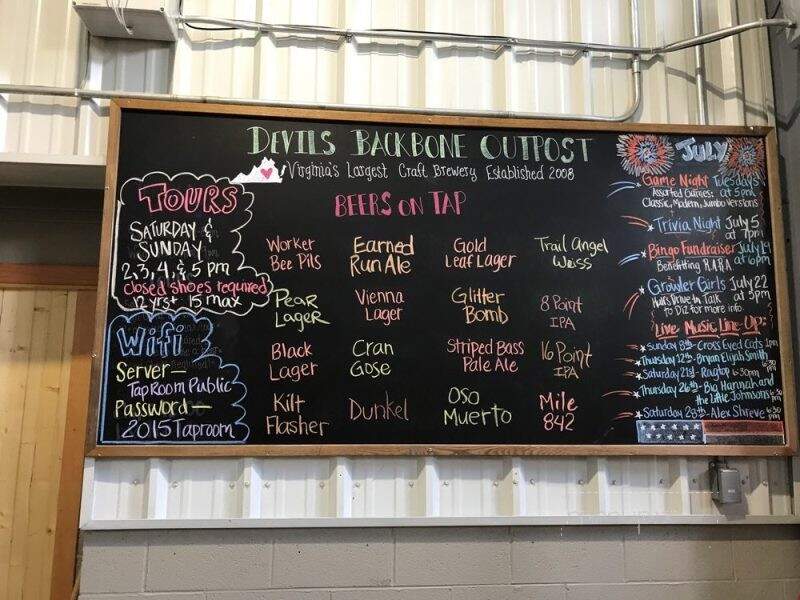 DEVILS BACKBONE OUTPOST
Virginia's Largest Craft Brewery Established 2008
TOURS
SATURDAY &
SUNDAY
2, 3, 4, & 5 pm
closed shoes required
12 yrs+ 15 max
Wifi
Server—
TapRoom Public
Password—
2015Taproom
BEERS ON TAP
Worker
Bee Pils
Earned
Run Ale
Gold
Leaf Lager
Trail Angel
Weiss
Pear
Lager
Vienna
Lager
Glitter
Bomb
8 Point
IPA
Black
Lager
Cran
Gose
Striped Bass
Pale Ale
16 Point
IPA
Kilt
Flasher
Dunkel
Oso
Muerto
Mile
842
JULY
Game Night Tuesdays
Assorted Games: at 5pm
Classic, Modern, Jumbo Versions
Trivia Night July 5
at 7pm
Bingo Fundraiser July 19
Benefitting R.A.R.A. at 6pm
Growler Girls July 22
at 3pm
to Diz for more info.
Live Music Line-Up:
Sunday 8th- Cross Eyed Cats 1pm
Thursday 12th- Bryan Elijah Smith
Saturday 21st- Ragtop 6:30pm
Thursday 26th- Big Hannah and
the Little Johnsons
Saturday 28th- Alex Shreve